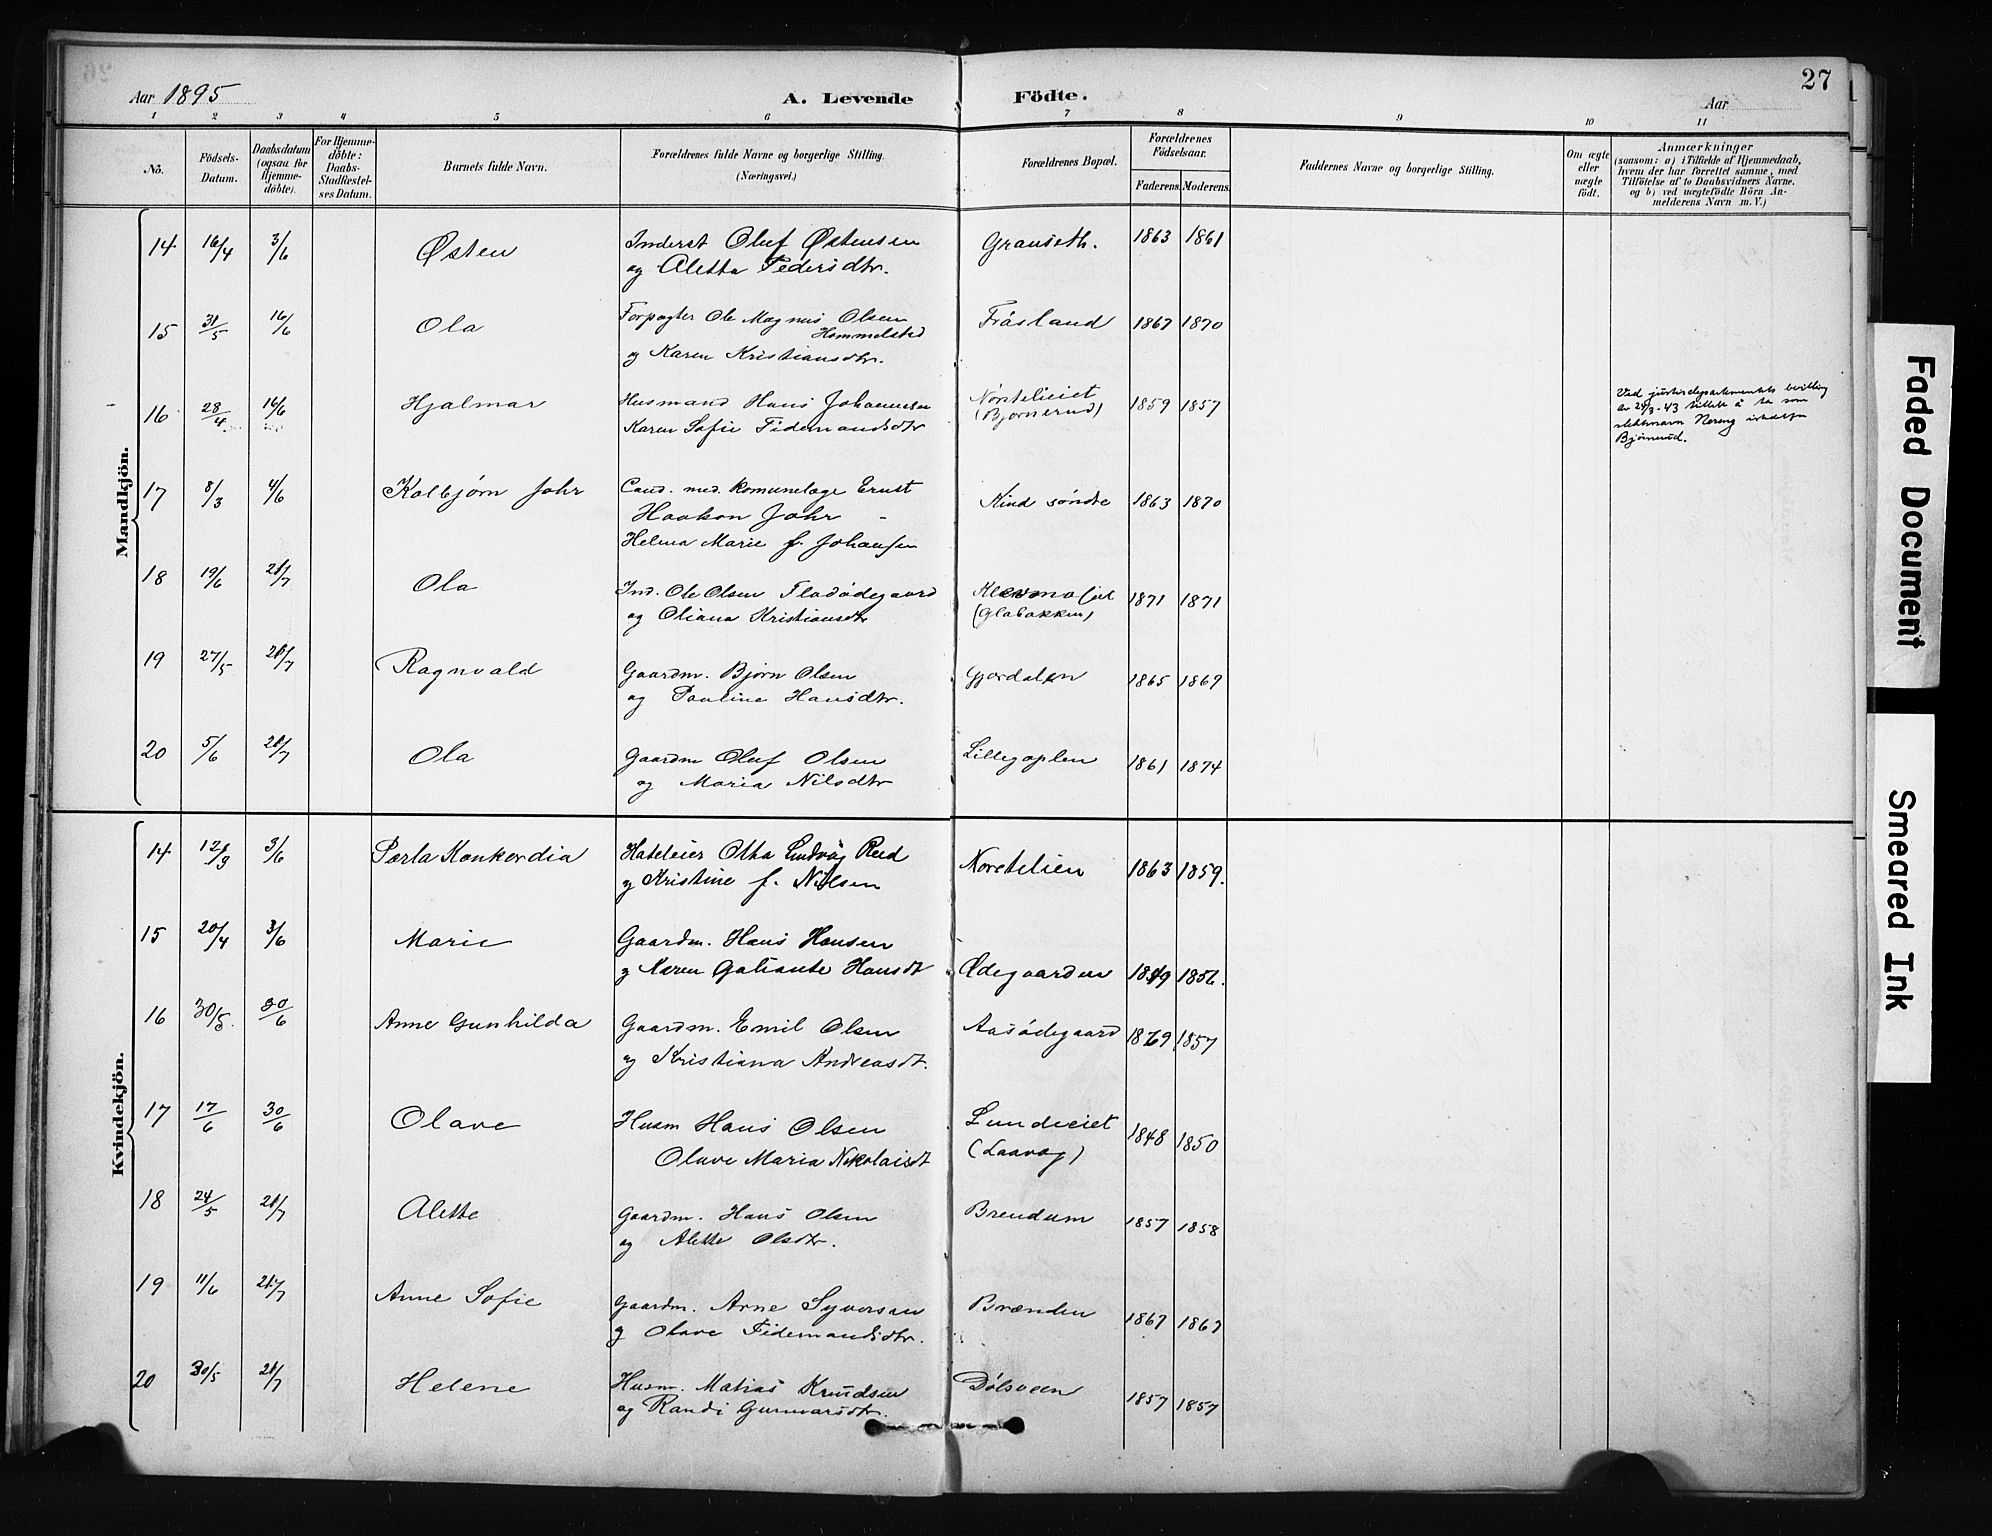 27
Aar 1895
A. Levende Födte.
Aar
1 2 3 4 5 6 7 8 9 10 11
No.
Födsels-Datum.
Daabsdatum (ogsaa for Hjemme-döbte).
For Hjemme-döbte: Daabs-Stadfæstel-ses Datum.
Barnets fulde Navn.
Forældrenes fulde Navne og borgerlige Stilling. (Næringsvei.)
Forældrenes Bopæl.
Forældrenes Födselsaar.
Faderens. Moderens.
Faddernes Navne og borgerlige Stilling.
Om ægte eller uægte födt.
Anmærkninger
(saasom: a) i Tilfælde af Hjemmedaab,
hvem der har forrettet samme, med
Tilföielse af to Daabsvidners Navne,
og b) ved uægtefödte Börn An-
melderens Navn m. V.)
Mandkjön.
14 16/4 3/6 Østen Inderst Oluf Østensen Granseth. 1863 1861
og Aletta Pedersdtr.
15 31/5 16/6 Ola Forpagter Ole Magnus Olsen Fråsland 1867 1870
Hommelstad
og Karen Kristiansdtr.
16 28/4 16/6 Hjalmar Husmand Hans Johannesen Nørstelieiet 1859 1857
Karen Sofie Tidemandsdtr (Bjørnerud)
Ved justisdepartementets bevilling
av 24/3-43 tillatt å ta som
slektsnavn Nereng istedetfor
Bjørnerud.
17 8/3 4/6 Kolbjørn Johr Cand. med. komunelæge Ernst Kind søndre 1863 1870
Haakon Johr -
Helma Marie f. Johansen
18 19/6 21/7 Ola Ind. Ole Olsen Fladødegaard 1871 1871
og Oliana Kristiansdtr (Glabakken)
19 27/5 21/7 Ragnvald Gaardm. Bjørn Olsen Gjørdalen 1865 1869
og Pauline Hansdtr.
20 5/6 21/7 Ola Gaardm Oluf Olsen Lillegoplen 1861 1874
og Maria Nilsdtr
Kvindekjön.
14 12/3 3/6 Perla Konkordia Otto Ludvig Reed Norstelien 1863 1859.
og Kristine f. Nilsen
15 20/4 3/6 Marie Gaardm. Hans Hansen
og Karen Galiante Hansdt Ødegaarden 1849 1856.
16 30/5. 30/6 Anne Gunhilda Gaardm. Emil Olsen Aasødegaard 1869 1857
og Kristiana Andreasdt.
17 17/6 30/6 Olave Husm Hans Olsen Lundeeiet 1848 1850
Olave Maria Nikolaisdt (Laavag)
18 24/5 21/7 Alette Gaardm. Hans Olsen Brendum 1857 1858
og Alette Olsdtr.
19 11/6 21/7 Anne Sofie Gaardm. Arne Syversen Brænden 1867 1867
og Olave Tidemandsdtr.
20 30/5 21/7 Helene Husm. Matias Knudsen Dølsveen 1857 1857
og Randi Gunnarsdtr.
Faded Document
Smeared Ink